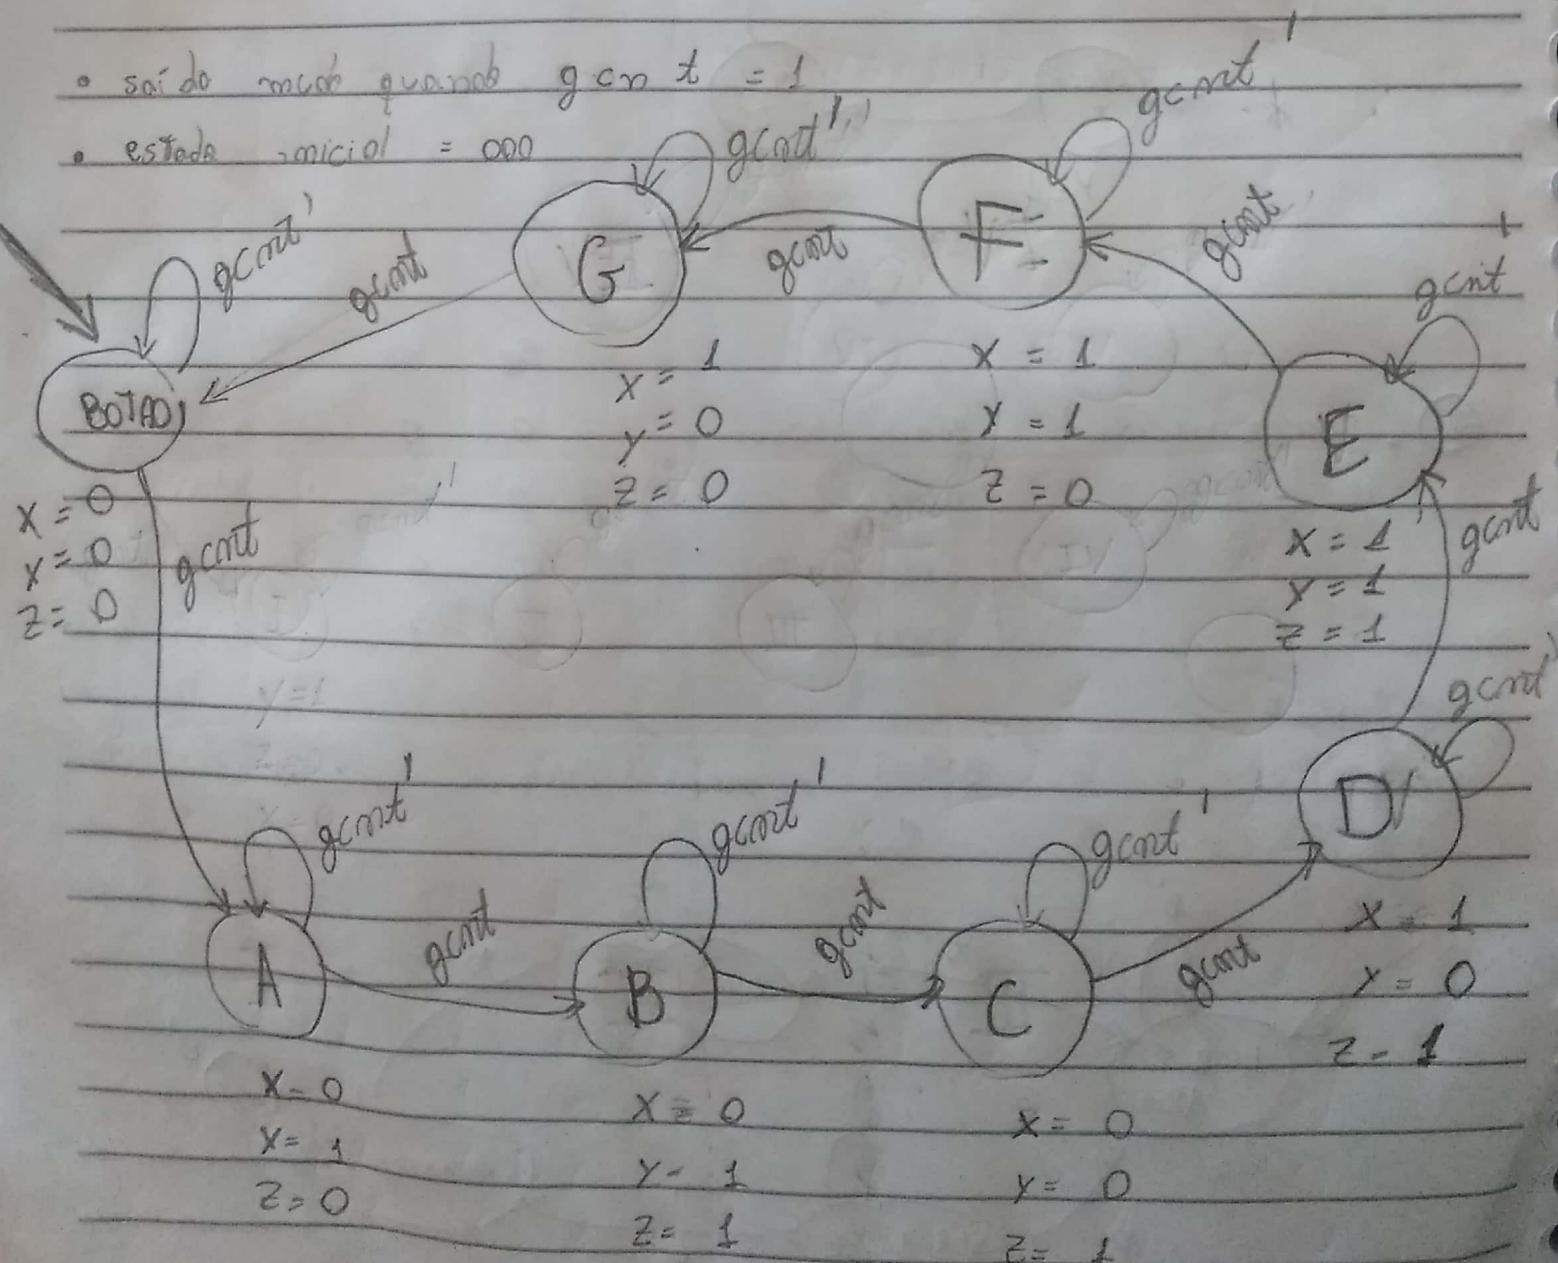 • saído muda quando gcnt = 1
• estado inicial = 000
gcnt'
gcnt'
gcnt'
gcnt
gcnt
gcnt
gcnt
G
F
E
BOTAO
X = 1
Y = 0
Z = 0
X = 1
Y = 1
Z = 0
X = 0
Y = 0
Z = 0
gcnt
X = 1
Y = 1
Z = 1
gcnt
gcnt'
D
gcnt'
gcnt'
gcnt'
gcnt
gcnt
gcnt
A
B
C
X = 1
Y = 0
Z = 1
X = 0
Y = 1
Z = 0
X = 0
Y = 1
Z = 1
X = 0
Y = 0
Z = 1